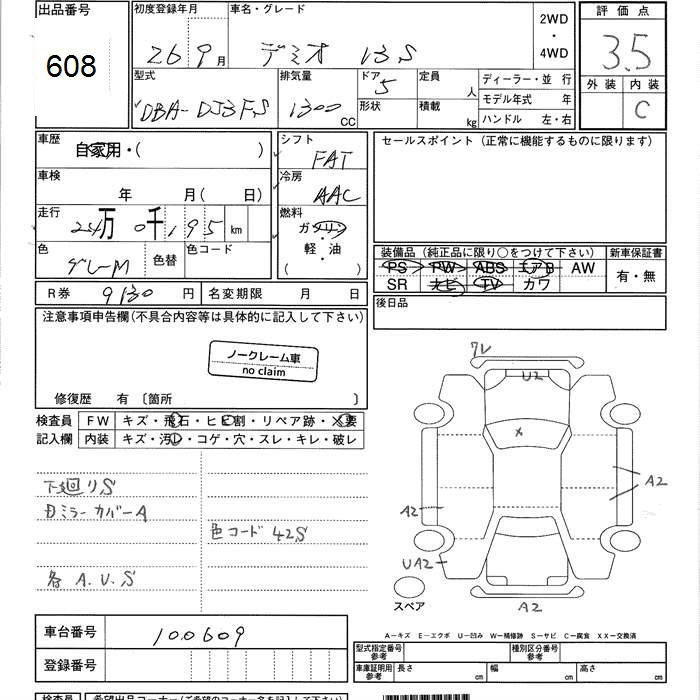 出品番号
608
初度登録年月
26 9月
車名・グレード
デミオ 13S
2WD
・
4WD
評価点
3.5
外装 内装
C
型式
DBA-DJ3FS
排気量
1300 CC
ドア 5
形状
定員 人
積載 kg
ディーラー・並行
モデル年式 年
ハンドル 左・右
車歴
自家用・( )
車検
年 月(日)
走行
25万 0千 195 km
色
グレーM
色替
色コード
シフト
FAT
冷房
AAC
燃料
ガソリン
・
軽・油
( )
セールスポイント(正常に機能するものに限ります)
装備品(純正品に限り○をつけて下さい)
新車保証書
PS PW ABS エアB AW
SR ナビ TV カワ
有・無
R券 9130円
名変期限 月 日
後日品
注意事項申告欄(不具合内容等は具体的に記入して下さい)
ノークレーム車
no claim
修復歴 有〔箇所 〕
検査員
記入欄
FW キズ・飛石・ヒビ割・リペア跡・X要
内装 キズ・汚れ・コゲ・穴・スレ・キレ・破レ
下廻りS
ミラーカバーA
色コード 42S
各 A.U.S
ワレ
U2
X
A2
A2
UA2
A2
スペア
車台番号
100609
登録番号
A-キズ E-エクボ U-凹み W-補修跡 S-サビ C-腐食 XX-交換済
型式指定番号
参考
種別区分番号
参考
車庫証明用
参考
長さ cm
幅 cm
高さ cm
検査員
希望出品コーナー(ご希望のコーナー名を記入して下さい)